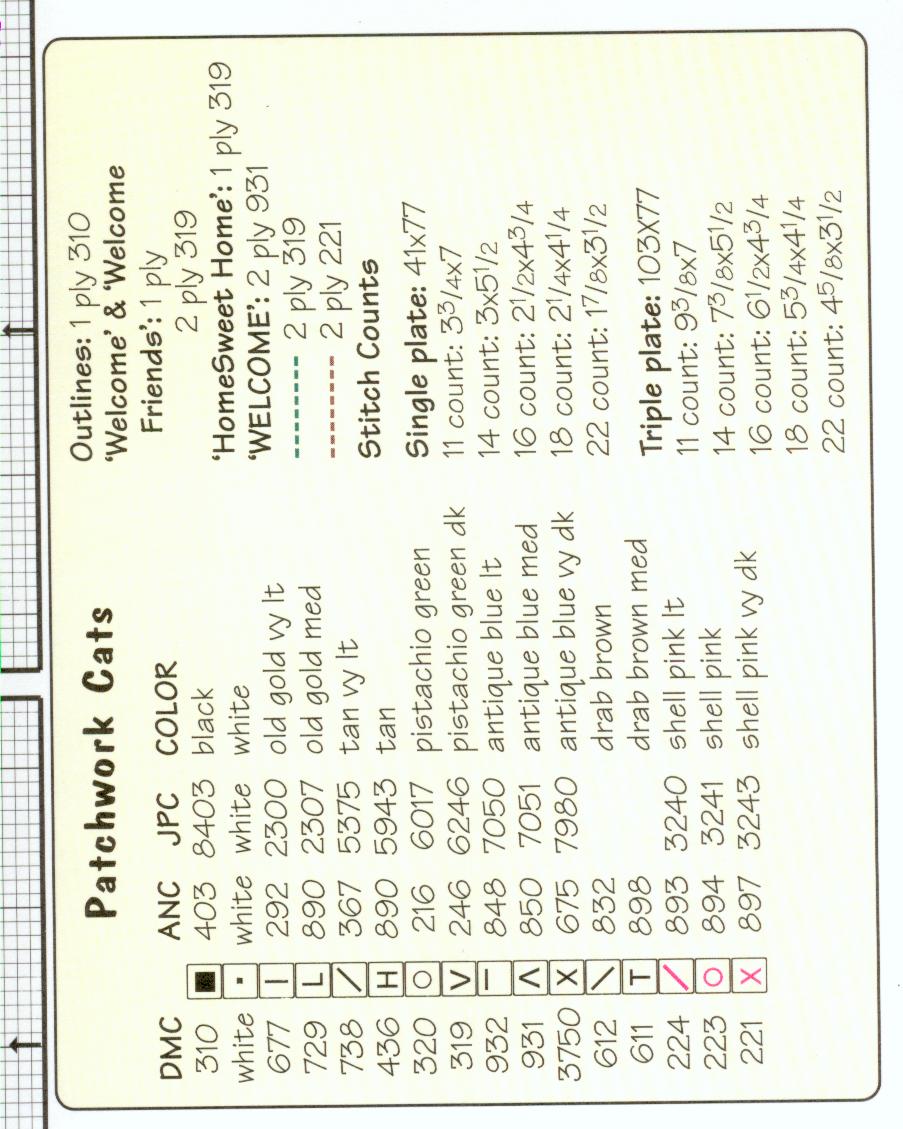 Patchwork Cats
DMC ANC JPC COLOR
310 ■ 403 8403 black
white · white white white
677 | 292 2300 old gold vy lt
729 L 890 2307 old gold med
738 / 367 5375 tan vy lt
436 H 890 5943 tan
320 O 216 6017 pistachio green
319 V 246 6246 pistachio green dk
932 — 848 7050 antique blue lt
931 Λ 850 7051 antique blue med
3750 X 675 7980 antique blue vy dk
612 \ 832 drab brown
611 T 898 drab brown med
224 / 893 3240 shell pink lt
223 O 894 3241 shell pink
221 X 897 3243 shell pink vy dk
Outlines: 1 ply 310
'Welcome' & 'Welcome
Friends': 1 ply
2 ply 319
'HomeSweet Home': 1 ply 319
'WELCOME': 2 ply 931
2 ply 319
2 ply 221
Stitch Counts
Single plate: 41x77
11 count: 3 3/4x7
14 count: 3x5 1/2
16 count: 2 1/2x4 3/4
18 count: 2 1/4x4 1/4
22 count: 1 7/8x3 1/2
Triple plate: 103X77
11 count: 9 3/8x7
14 count: 7 3/8x5 1/2
16 count: 6 1/2x4 3/4
18 count: 5 3/4x4 1/4
22 count: 4 5/8x3 1/2